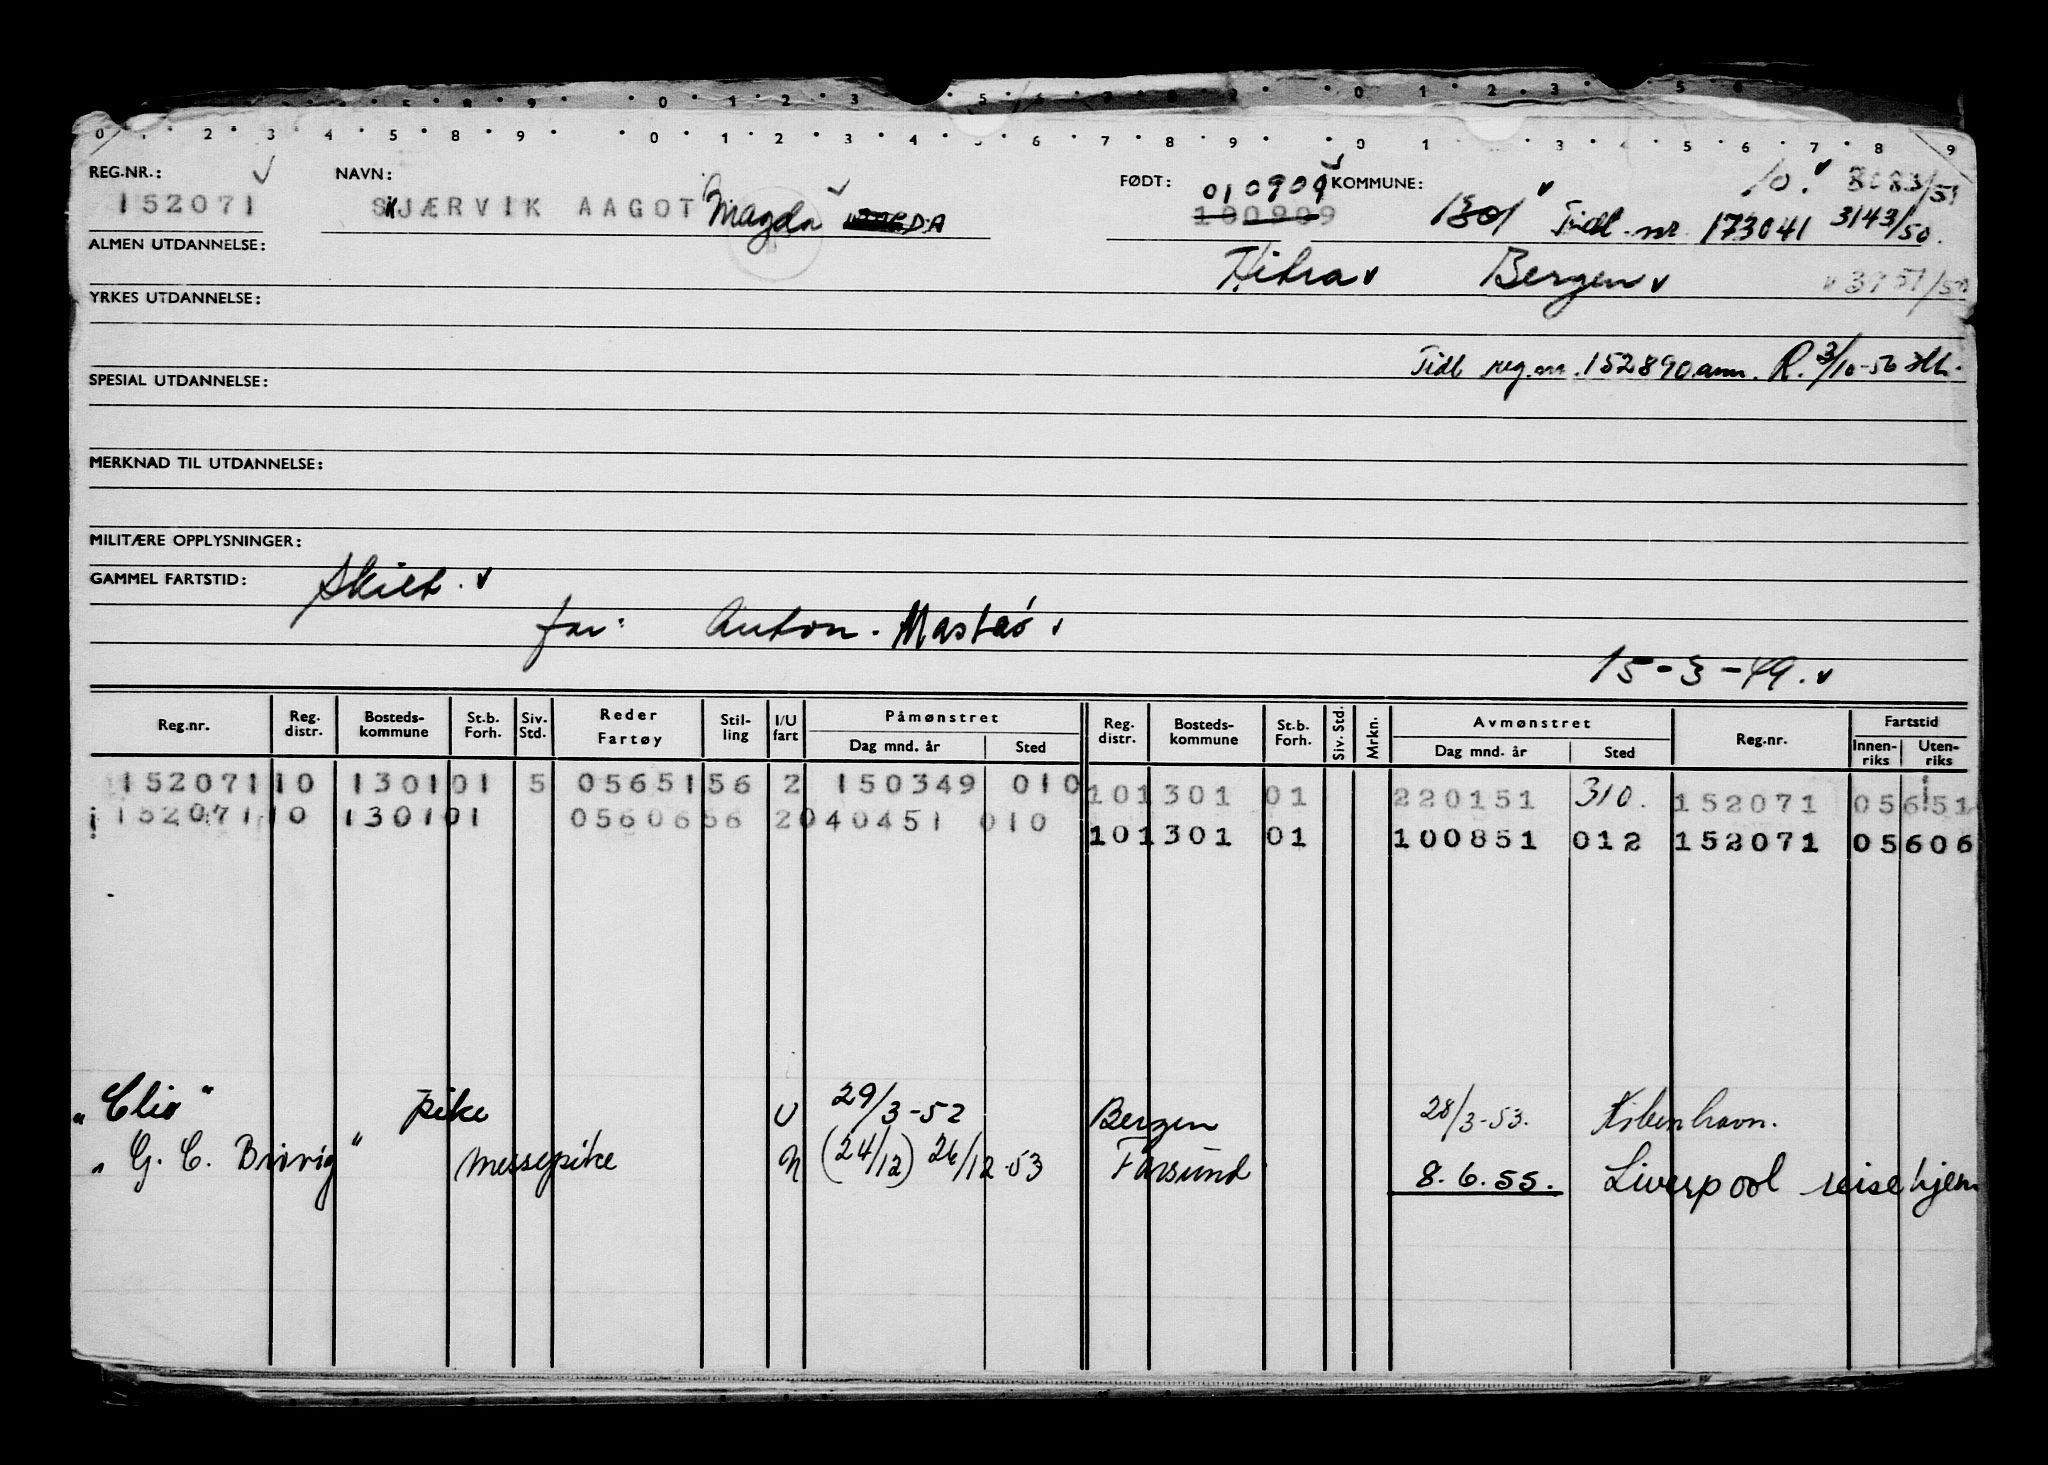 0 2 3 4 5 8 9 0 1 2 3 4 6 7 8 9 0 1 3 4 5 6 7 8 9
REG.NR.: NAVN: FØDT: 010909 KOMMUNE: 10. 8083/51
152071 SKJÆRVIK AAGOT Magda 100909 1301 Tidl. nr. 173041 3143/50.
ALMEN UTDANNELSE: Hitra Bergen 3951/50
YRKES UTDANNELSE:
Tidl reg.nr. 152890 ann. R. 3/10-56
SPESIAL UTDANNELSE:
MERKNAD TIL UTDANNELSE:
MILITÆRE OPPLYSNINGER:
GAMMEL FARTSTID: Skilt.
far: Anton. Mastad
15-3-49.
Reg.nr. Reg. distr. Bosteds- kommune St.b. Forh. Siv. Std. Reder Fartøy Stil- ling I/U fart Påmønstret Dag mnd. år Sted Reg. distr. Bosteds- kommune St.b. Forh. Siv. Std. Mrkn. Avmønstret Dag mnd. år Sted Reg.nr. Fartstid Innen- riks Uten- riks
152071 10 1301 01 5 05651 56 2 150349 010 10 1301 01 220151 310. 152071 05651
152071 10 1301 01 05606 56 2 040451 010
10 1301 01 100851 012 152071 05606
"Clio" pike U 29/3-52 Bergen 28/3-53. København.
"G. C. Brøvig" messepike N (24/12) 26/12-53 Farsund 8.6.55. Liverpool reise hjem